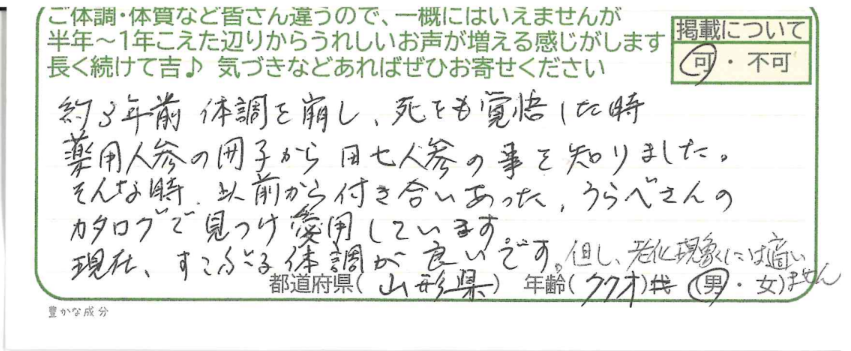 ご体調・体質など皆さん違うので、一概にはいえませんが
半年～1年こえた辺りからうれしいお声が増える感じがします
長く続けて吉♪ 気づきなどあればぜひお寄せください
掲載について
可・不可
約3年前 体調を崩し、死をも覚悟した時
薬用人参の冊子から田七人参の事を知りました。
そんな時、以前から付き合いあった、うらべさんの
カタログで見つけ愛用しています
現在、すこぶる体調が良いです。但し、老化現象には適い
ません
都道府県(山形県) 年齢(77才) (男・女)
豊かな成分